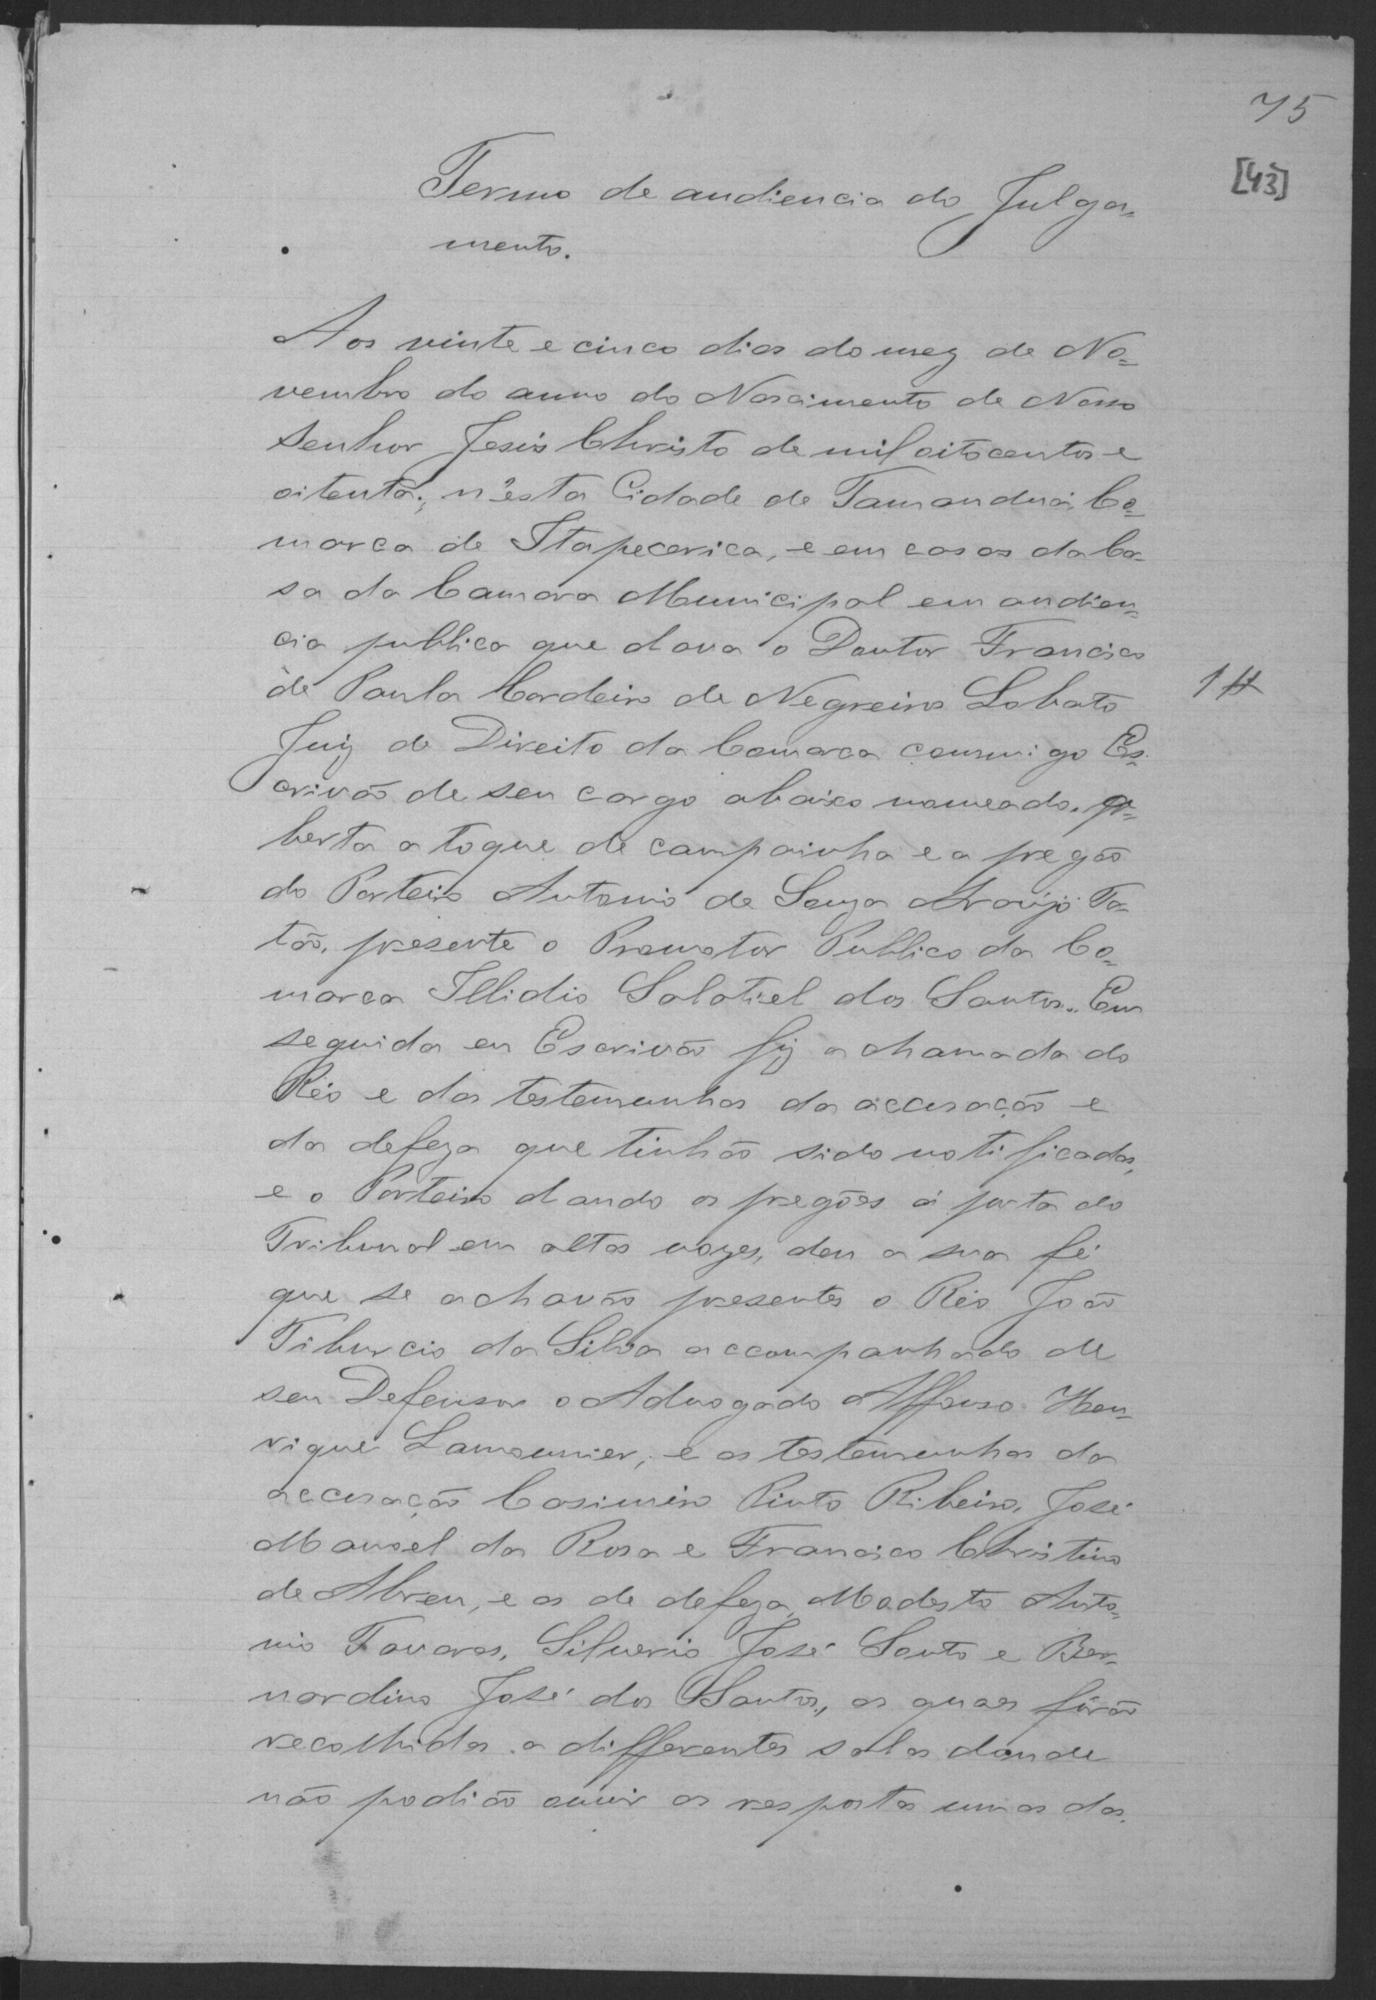 75
[43]
Termo de audiencia do Julga=
mento.
Aos vinte e cinco dias do mez de No=
vembro do anno do Nascimento de Nosso
Senhor Jesús Christo de mil oitocentos e
oitenta; n'esta Cidade de Tamanduá Co=
marca de Itapecerica, e em casas da Ca=
sa da Camara Municipal em audien=
cia publica que dava o Doutor Francisco
de Paula Cordeiro de Negreiros Lobato
1#
Juiz de Direito da Comarca commigo Es=
crivão de seu cargo abaixo nomeado, a=
berta a toque de campainha e a pregão
do Porteiro Antonio de Souza Araujo Ta=
tão, presente o Promotor Publico da Co=
marca Illidio Salatiel dos Santos. Em
seguida eu Escrivão fiz a chamada do
Réo e das testemunhas da accusação e
da defeza que tinhão sido notificadas,
e o Porteiro dando os pregões á porta do
Tribunal em altas vozes, deu a sua fé
que se achavão presentes o Réo João
Tiburcio da Silva accompanhado de
seu Defensor o Advogado Affonso Hen=
rique Lamounier, e as testemunhas da
accusação Casimiro Pinto Ribeiro, José
Manoel da Rosa e Francisco Christino
de Abreu, e as de defeza, Modesto Anto=
nio Tavares, Silverio José Souto e Ber=
nardino José dos Santos, as quaes fôrão
recolhidas a differentes salas d'onde
não podião ouvir as respostas umas das